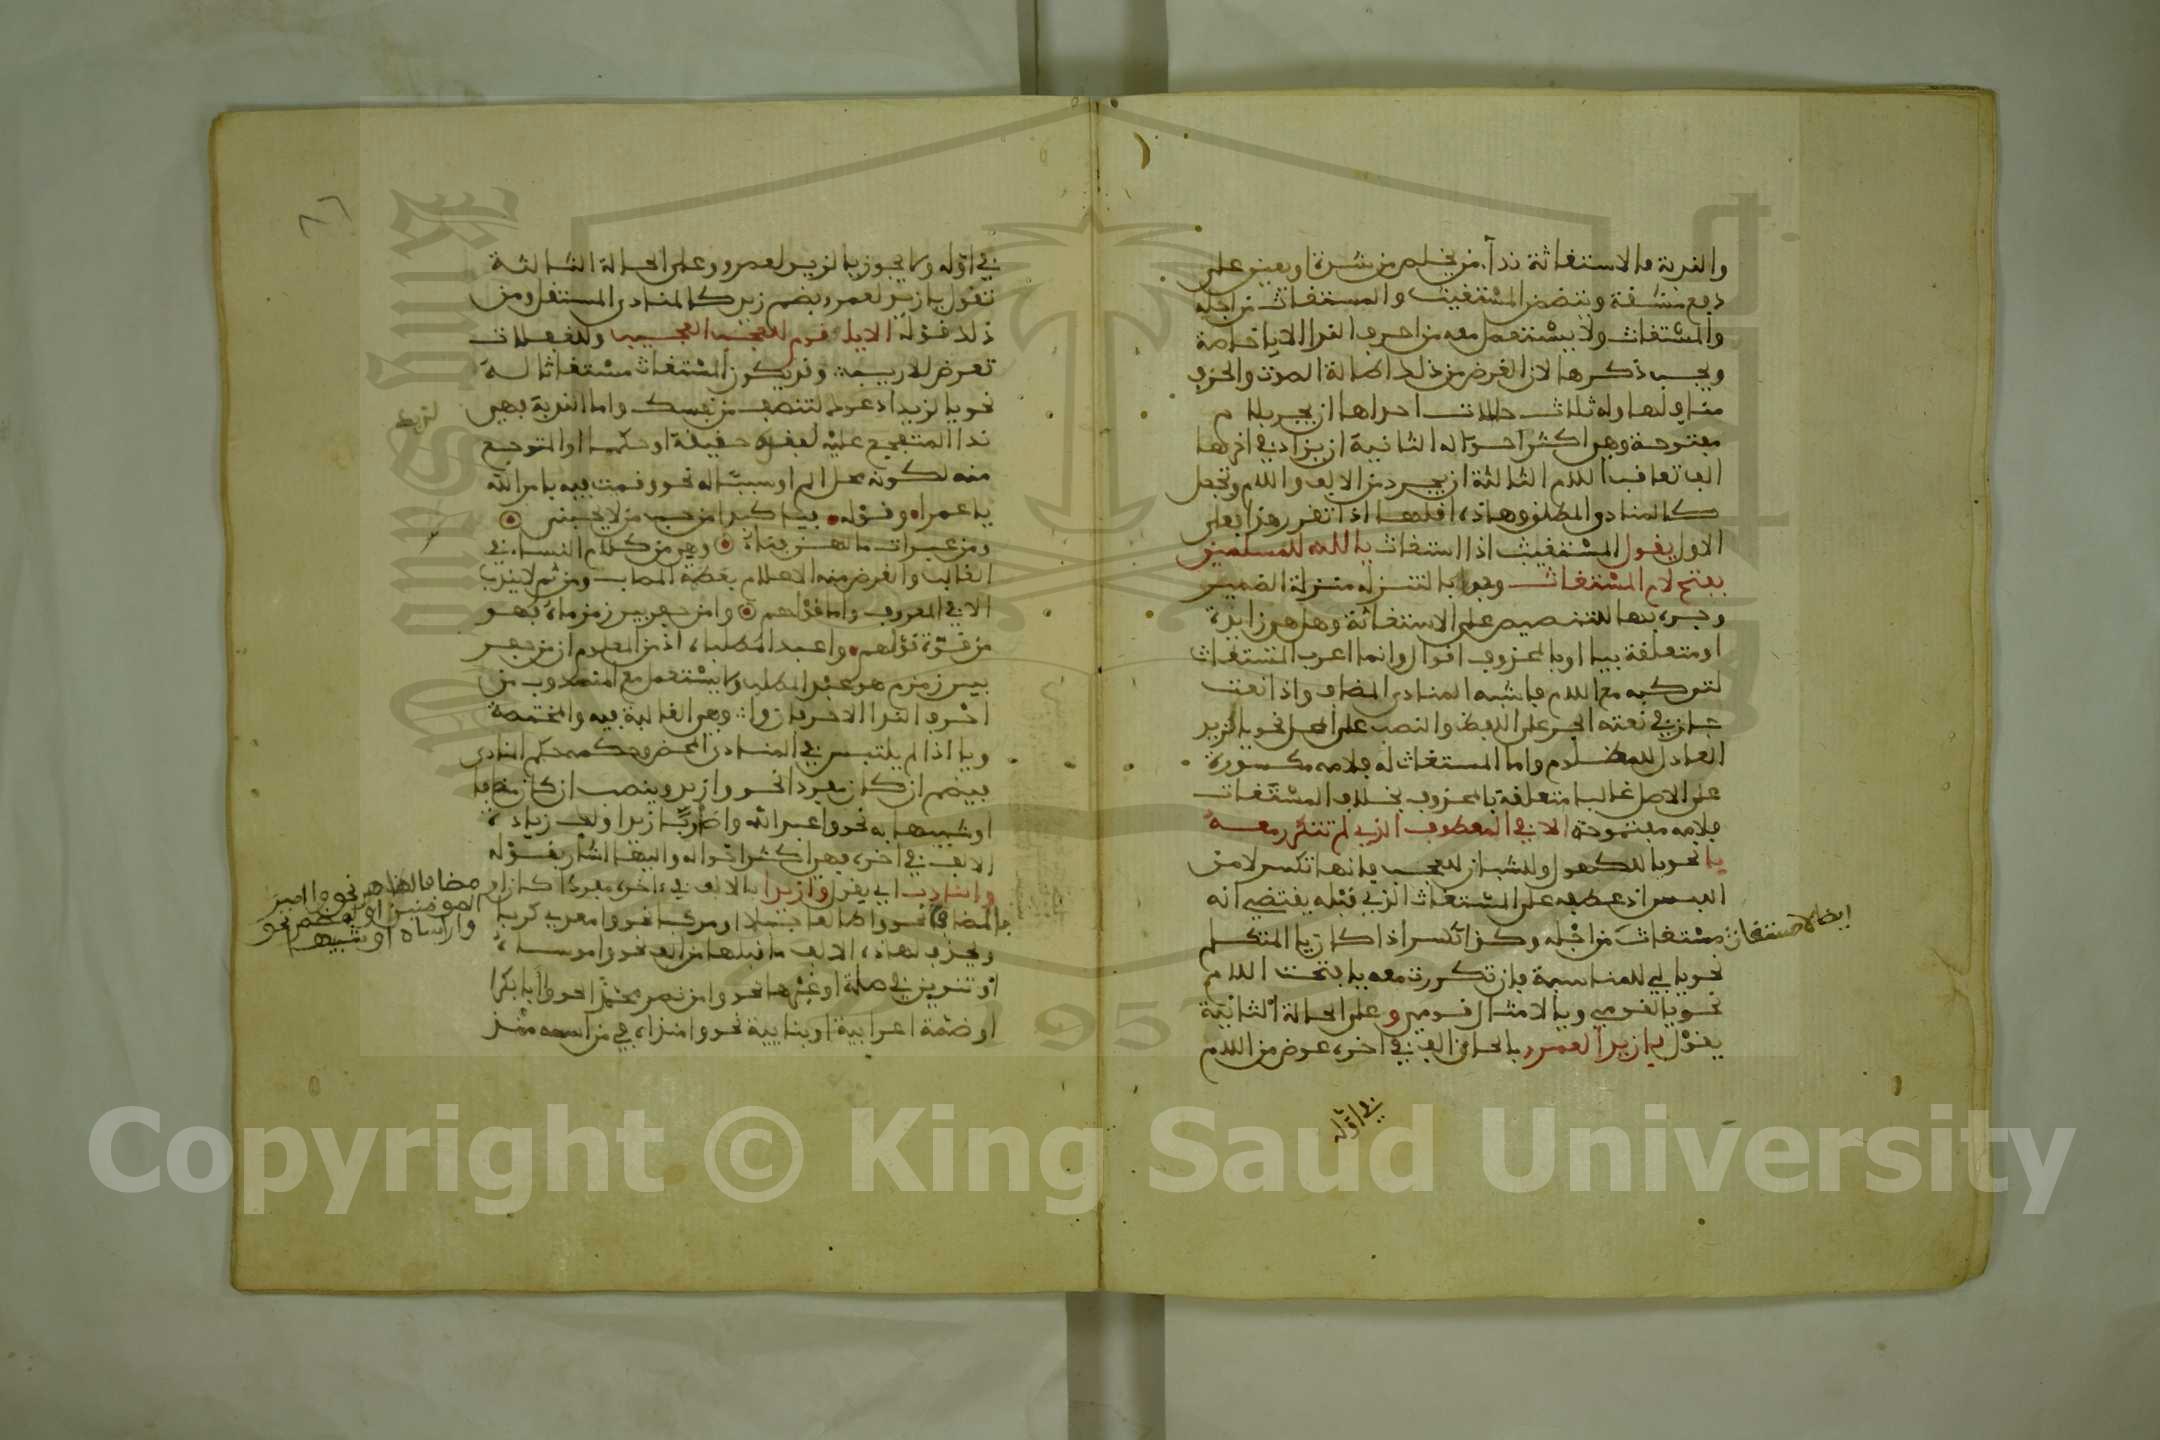 والندبة فالاستغاثة نداء من يخلص من شدة او يعين على
دفع مشقة وتتضمن المستغيث والمستغاث من اجله
والمستغاث ولا يستعمل معه من احرف الندا الا يا خاصة
ويجب ذكرها لان الغرض من ذلك اطالة الصوت والحذف
مناف لها وله ثلاث حالات احداها ان يجر بلام
مفتوحة وهي اكثر احواله الثانية ان يزاد في اخرها
الف تعاقب اللام الثالثة ان يجرد من الالف واللام ويجعل
كالمنادى المطلق وهاذه اقلها اذا تقرر هذا فعلى
الاول يقول المستغيث اذا استغاث يا لله للمسلمين
بفتح لام المستغاث وفوا بالتنزله منزلة الضمير
وجره بها للتنصيص على الاستغاثة وهل هي زايدة
او متعلقة بيا او بالمحذوف اقوال وانما اعرب المستغاث
لتركيبه مع اللام فاشبه المنادى المضاف واذا نعت
جاز في نعته الجر على اللفظ والنصب على المحل نحو يا لزيد
العادل للمظلوم واما المستغاث له فلامه مكسورة
على الاصل غالبا متعلقة بالمحذوف بخلاف المستغاث
فلامه مفتوحة الا في المعطوف الذي لم تتكرر معه
يا نحو يا للكهول وللشبان للعجب فانها تكسر لامن
اللبس اذ عطفه على المستغاث الذي قبله يقتضي انه
مستغاث من اجله وكذا تكسر اذا كان يا المتكلم
ايضا لام المستغاث
نحو يا لي للمناسبة فان تكررت معه يا فتحت اللام
نحو يا لقومي ويا لامثال قومي وعلى الحالة الثانية
يقول يا زيدا لعمرو بالحاق الف في اخره عوض من اللام
في اوله
في اوله ولا يجوز يا لزيد لعمرو وعلى الحالة الثالثة
تقول يا زيد لعمرو بضم زيد كالمنادى المستقل ومن
ذلك قوله الا يا قوم للعجب العجيب وللغفلات
تعرض للاريب وقد يكون المستغاث مستغاثا له
نحو يا لزيد ادعوه لتنصف من نفسك واما الندبة فهي
لزيد
ندا المتفجع عليه لفقده حقيقة او حكما او المتوجع
منه لكونه محل الم او سببا له نحو وقمت فيه بامر الله
يا عمرا وقوله فيا كبدا من حب من لا يحبني
ومن عبرات ما لهن فناء وهي من كلام النساء في
الغالب والغرض منه الاعلام بعظمة المصاب ومن ثم لا يندب
الا في المعروف واما قولهم وا من حفر بير زمزماه فهو
من قوة قولهم وا عبد المطلباه اذ من المعلوم ان من حفر
بير زمزم هو عبد المطلب ولا يستعمل مع المندوب من
احرف الندا الا حرفان وا وهي الغالبة فيه والمختصة
ويا اذا لم يلتبس في المنادى المحض وحكمه حكم المنادى
فيضم ان كان مفردا نحو وا زيد وينصب ان كان مضافا
او شبيها به نحو وا عبد الله وا ضاربا زيدا ولك زيادة
الالف في اخره فهي اكثر احواله واليها اشار بقوله
والنادب اي يقول وا زيدا بالالف في اخره مفردا كان ام
مضافا لظاهر نحو وا امير
المومنين او لمضمر نحو
وا راساه او شبيها
بالمضاف نحو وا طالعا جبلا او مركبا نحو وا معدي كربا
ويحذف لهاذه الالف ما قبلها من الف نحو وا موساه
او تنوين في صلة او غيرها نحو وا من نصر محمدا نحو وا ابا بكرا
او ضمة اعرابية او بنايية نحو وا منذاه في من اسمه منذ